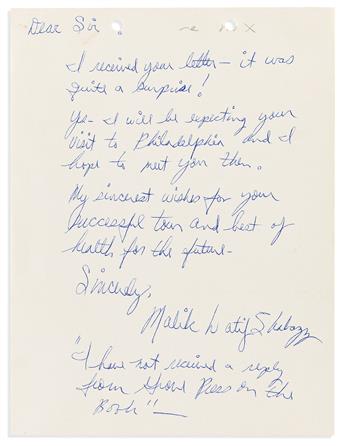 Dear Sir:
I received your letter – it was
quite a surprise!
Yes – I will be expecting your
visit to Philadelphia and I
hope to meet you then.
My sincerest wishes for your
successful tour and best of
health for the future –
Sincerely,
Malik Latif Shabazz
"I have not received a reply
from Grove Press on the
Book" —